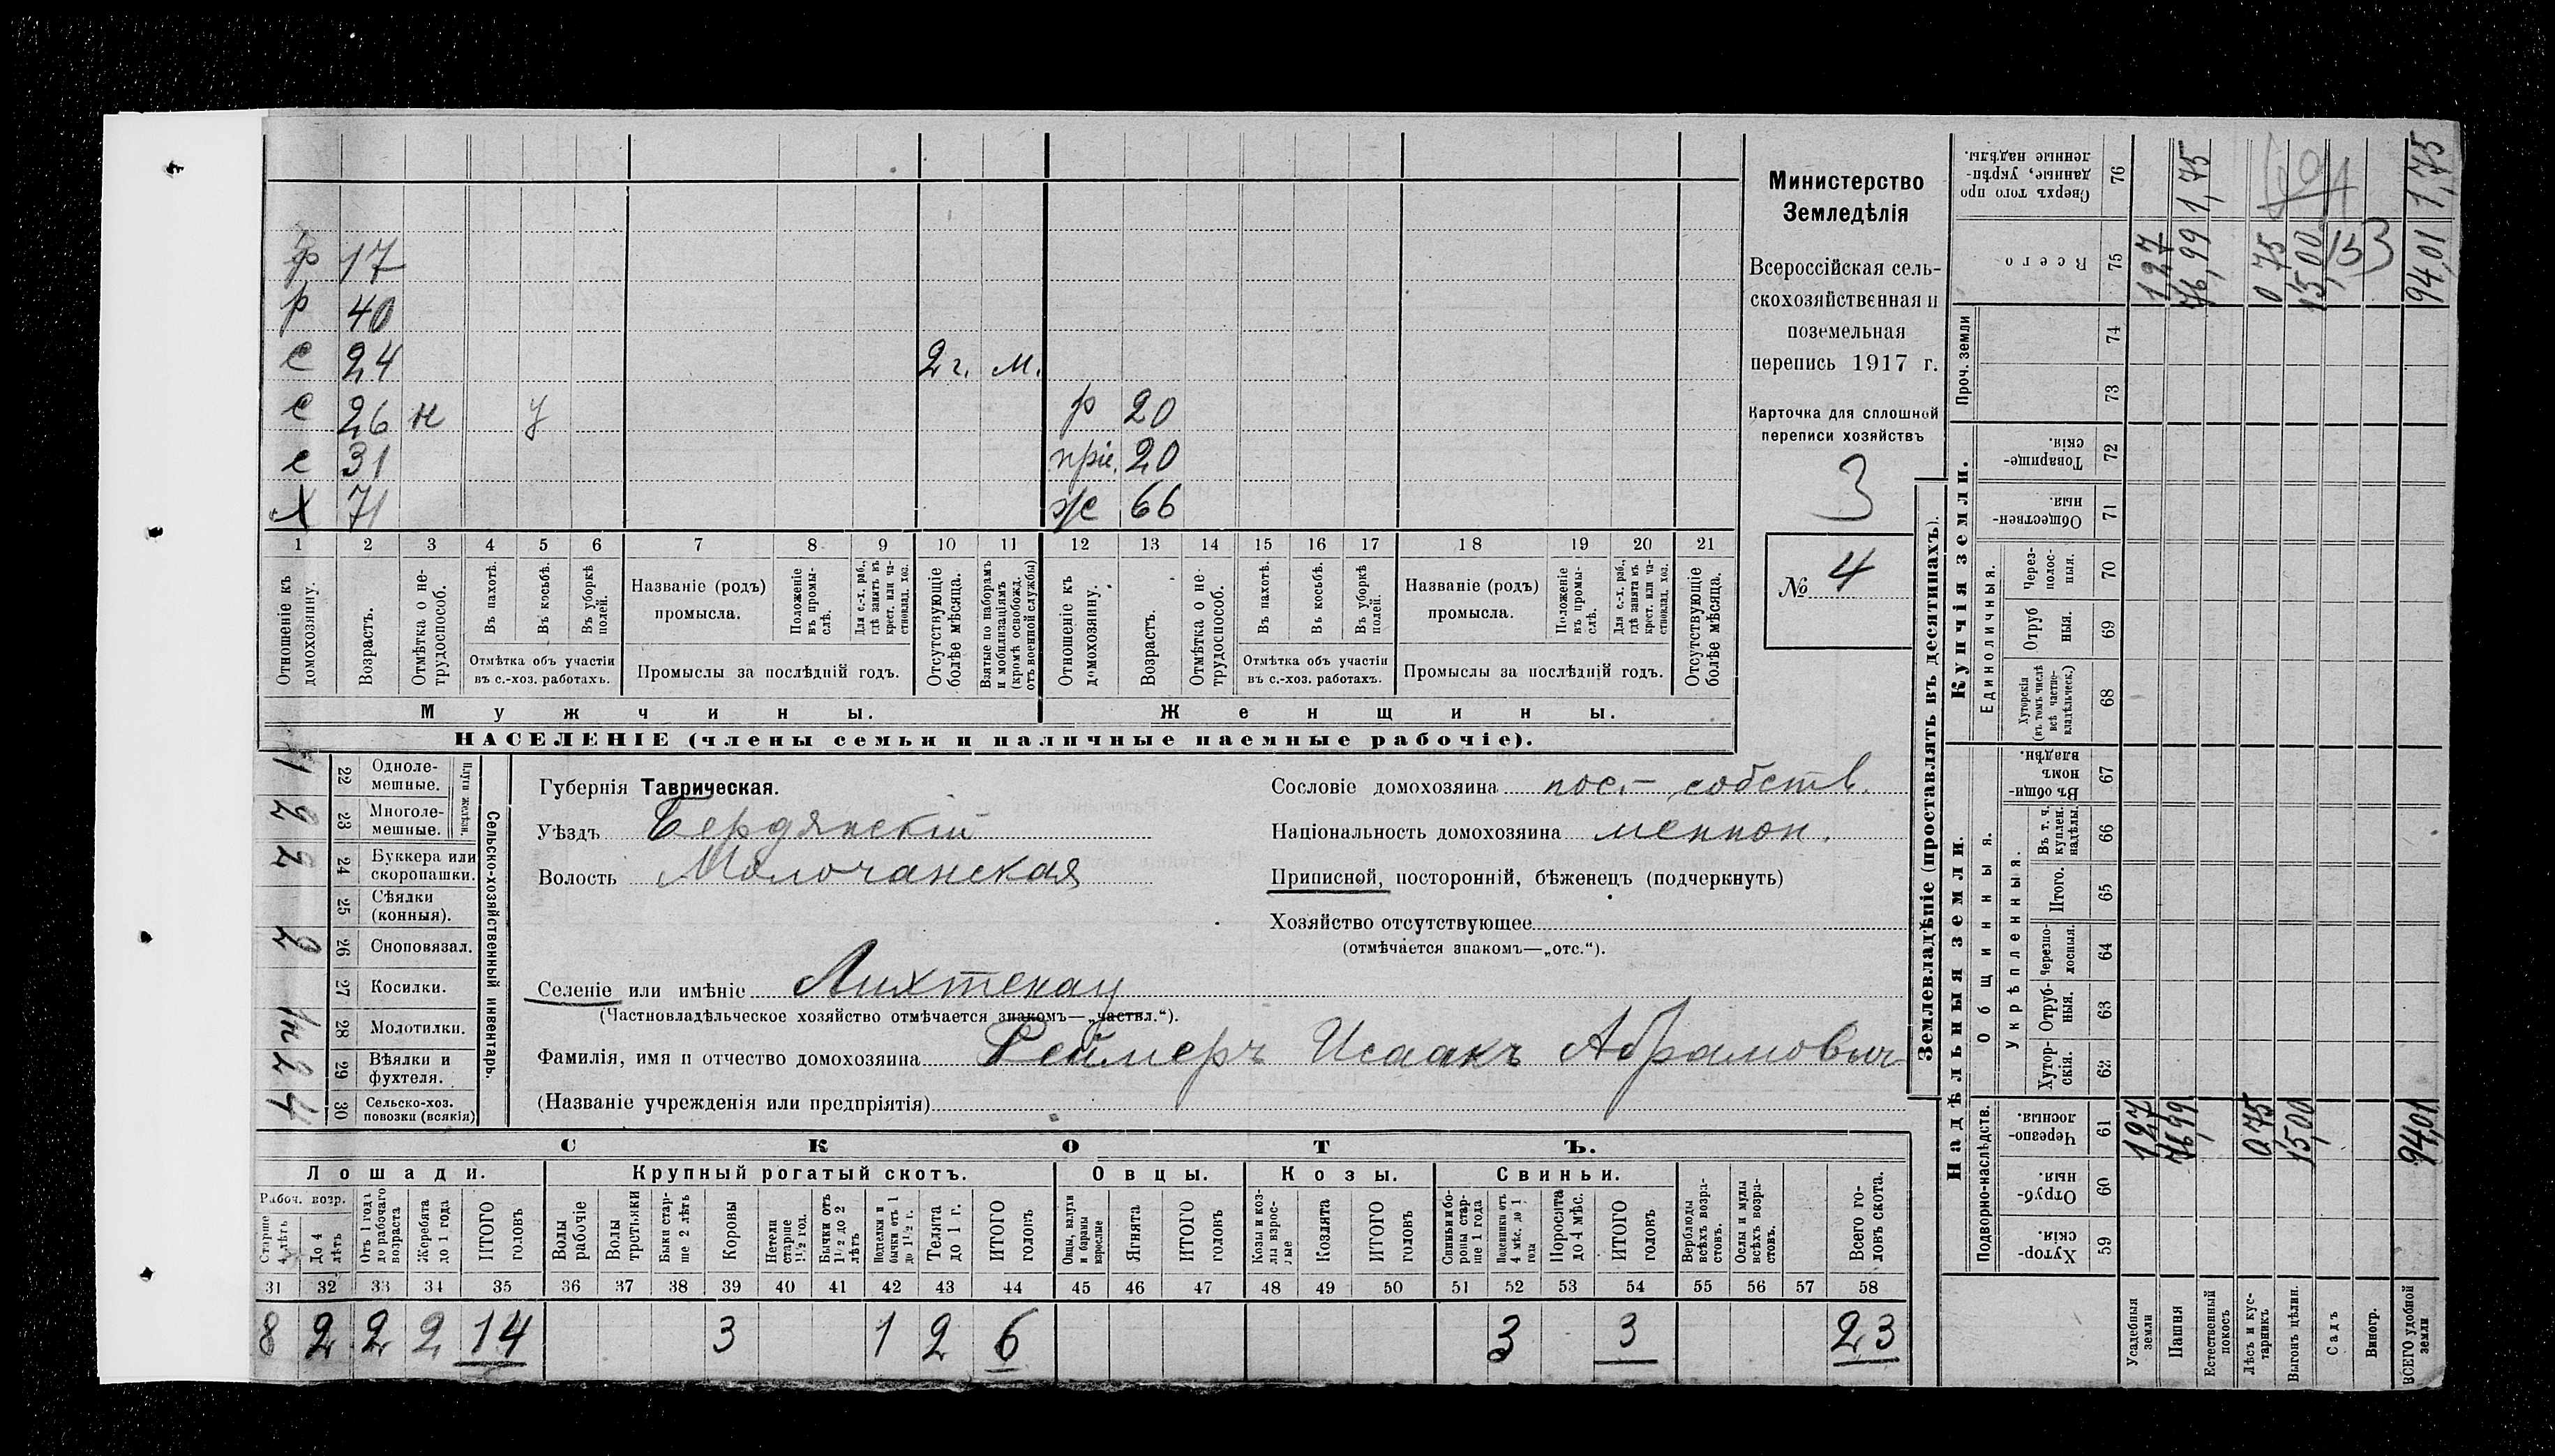 ф 17
р 40
с 24 2 г. м.
с 26 н у р 20
с 31 пріе. 20
х 71 ж 66
1 2 3 4 5 6 7 8 9 10 11 12 13 14 15 16 17 18 19 20 21
Отношеніе къ домохозяину.
Возрастъ.
Отмѣтка о не-трудоспособ.
Въ пахотѣ.
Въ косьбѣ.
Въ уборкѣ полей.
Отмѣтка объ участіи въ с.-хоз. работахъ.
Названіе (родъ) промысла.
Положеніе въ промы-слѣ.
Для с.-х. раб., гдѣ занятъ въ крест. или ча-стновлад. хоз.
Промыслы за послѣдній годъ.
Отсутствующіе болѣе мѣсяца.
Взятые по наборамъ и мобилизаціямъ (кромѣ освобожд. отъ военной службы)
Отношеніе къ домохозяину.
Возрастъ.
Отмѣтка о не-трудоспособ.
Въ пахотѣ.
Въ косьбѣ.
Въ уборкѣ полей.
Отмѣтка объ участіи въ с.-хоз. работахъ.
Названіе (родъ) промысла.
Положеніе въ промы-слѣ.
Для с.-х. раб., гдѣ занята въ крест. или ча-стновлад. хоз.
Промыслы за послѣдній годъ.
Отсутствующіе болѣе мѣсяца.
Мужчины.
Женщины.
НАСЕЛЕНІЕ (члены семьи и наличные наемные рабочіе).
Министерство
Земледѣлія
Всероссійская сель-
скохозяйственная и
поземельная
перепись 1917 г.
Карточка для сплошной
переписи хозяйствъ
3
№ 4
Сельско-хозяйственный инвентарь.
Плуги желѣзн.
1 22 Одноле-мешные.
2 23 Многоле-мешные.
2 24 Буккера или скоропашки.
25 Сѣялки (конныя).
2 26 Сноповязал.
27 Косилки.
28 Молотилки.
2 29 Вѣялки и фухтеля.
4 30 Сельско-хоз. повозки (всякія)
Губернія Таврическая.
Уѣздъ Бердянскій
Волость Молочанская
Селеніе или имѣніе Лихтенау
(Частновладѣльческое хозяйство отмѣчается знакомъ—„частвл.“).
Фамилія, имя и отчество домохозяина Реймеръ Исаакъ Абрамович
(Названіе учрежденія или предпріятія)
Сословіе домохозяина пос.- собств.
Національность домохозяина меннон.
Приписной, посторонній, бѣженецъ (подчеркнуть)
Хозяйство отсутствующее
(отмѣчается знакомъ—„отс.“).
СКОТЪ.
Лошади. Крупный рогатый скотъ. Овцы. Козы. Свиньи.
Рабоч. возр.
Старше 4 лѣтъ
До 4 лѣтъ
Отъ 1 года до рабочаго возраста
Жеребята до 1 года
ИТОГО головъ
Волы рабочіе
Волы третьяки
Быки стар-ше 2 лѣтъ
Коровы
Нетели старше 1½ год.
Бычки отъ 1½ до 2 лѣтъ
Подтелки и бычки отъ 1 до 1½ г.
Телята до 1 г.
ИТОГО головъ
Овцы, валухи и бараны взрослые
Ягнята
ИТОГО головъ
Козы и коз-лы взрос-лые
Козлята
ИТОГО головъ
Свиньи и бо-ровы стар-ше 1 года
Подсвинки отъ 4 мѣс. до 1 года
Поросята до 4 мѣс.
ИТОГО головъ
Верблюды всѣхъ возра-стовъ.
Ослы и мулы всѣхъ возра-стовъ.
Всего го-ловъ скота.
31 32 33 34 35 36 37 38 39 40 41 42 43 44 45 46 47 48 49 50 51 52 53 54 55 56 57 58
8 2 2 2 14 3 1 2 6 3 3 23
Землевладѣніе (проставлять въ десятинахъ).
Надѣльныя земли.
Подворно-наслѣдств.
Хутор-скія. 59
Отруб-ныя. 60
Черезпо-лосныя. 61
Общинныя.
Укрѣпленныя.
Хутор-скія. 62
Отруб-ныя. 63
Черезпо-лосныя. 64
Итого. 65
Въ т. ч. куплен. надѣлы. 66
Въ общи-номъ владѣн. 67
Купчія земли.
Единоличныя.
Хуторскія (въ томъ числѣ всѣ частно-владѣльческ.) 68
Отруб ныя. 69
Через-полос-ныя. 70
Обществен-ныя. 71
Товарище-скія. 72
Проч. земли
73
74
Всего 75
Сверхъ того про данные, укрѣп-ленные надѣлы. 76
Усадебныя земли 1,27 1,27
Пашня 76,99 76,99 1,75
Естественный покосъ
Лѣсъ и кус-тарникъ 0,75 0,75
Выгонъ цѣлин. 15,00 15,00
Садъ
Виногр.
ВСЕГО удобной земли 94,01 94,01 1,75